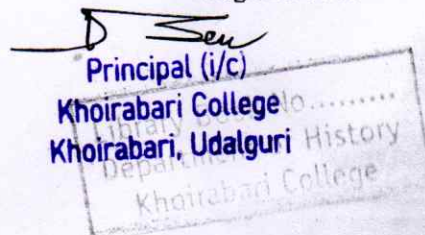 D Sen
Principal (i/c)
Khoirabari College
Khoirabari, Udalguri
Library Book No.........
Department History
Khoirabari College